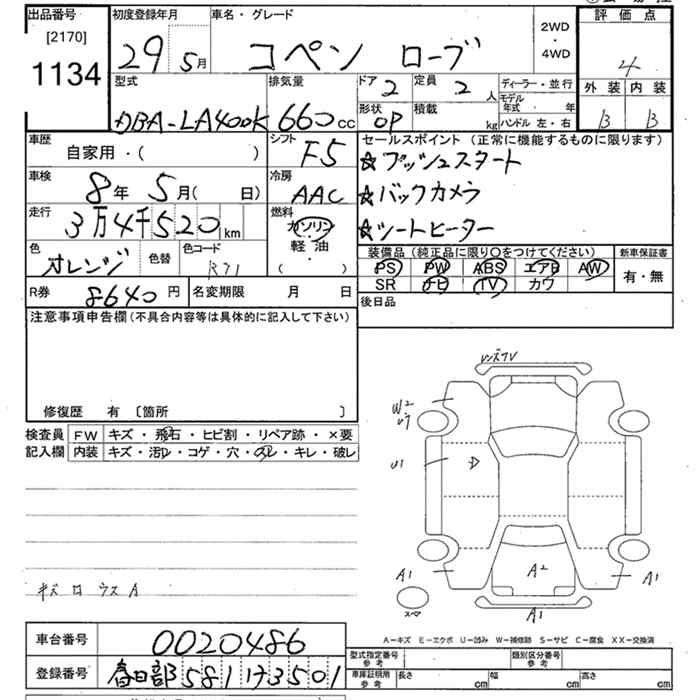 出品番号 初度登録年月 車名・グレード 評価点
[2170] 29 5月 コペン ローブ 2WD・4WD 4
1134
型式 排気量 ドア 2 定員 2人 ディーラー・並行 外装 内装
DBA-LA400K 660cc 形状 OP 積載 kg モデル年式 年 ハンドル 左・右 B B
車歴 自家用・( ) シフト F5 セールスポイント (正常に機能するものに限ります)
☆プッシュスタート
車検 8年 5月( 日) 冷房 AAC ☆バックカメラ
走行 3万4千520km 燃料 ガソリン 軽油・( ) ☆シートヒーター
色 オレンジ 色替 色コード R71 装備品 (純正品に限り○をつけてください) 新車保証書
PS PW ABS エアB AW 有・無
SR ナビ TV カワ
R券 8640円 名変期限 月 日 後日品
注意事項申告欄 (不具合内容等は具体的に記入して下さい)
修復歴 有 〔箇所 〕
検査員 FW キズ・飛石・ヒビ割・リペア跡・×要
記入欄 内装 キズ・汚レ・コゲ・穴・のレ・キレ・破レ
W2
U1
A1
A2
A1
A1
スペア
キズ ロ ウス A
A-キズ E-エクボ U-凹み W-補修跡 S-サビ C-腐食 XX-交換済
車台番号 0020486 型式指定番号 参考 類別区分番号 参考
登録番号 春日部581 3501 車庫証明用 参考 長さ cm 幅 cm 高さ cm